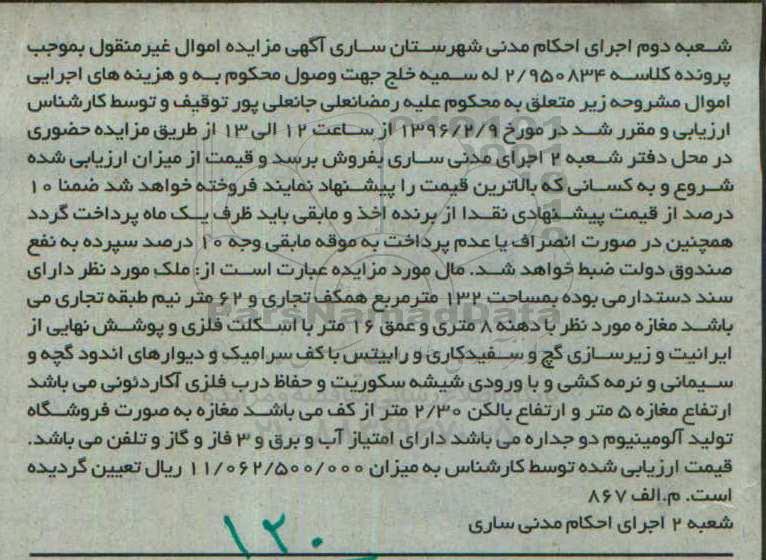 شعبه دوم اجرای احکام مدنی شهرستان ساری آگهی مزایده اموال غیرمنقول بموجب
پرونده کلاسه ۲/۹۵۰۸۳۴ له سمیه خلج جهت وصول محکوم به و هزینه های اجرایی
اموال مشروحه زیر متعلق به محکوم علیه رمضانعلی جانعلی پور توقیف و توسط کارشناس
ارزیابی و مقرر شد در مورخ ۱۳۹۶/۲/۹ از ساعت ۱۲ الی ۱۳ از طریق مزایده حضوری
در محل دفتر شعبه ۲ اجرای مدنی ساری بفروش برسد و قیمت از میزان ارزیابی شده
شروع و به کسانی که بالاترین قیمت را پیشنهاد نمایند فروخته خواهد شد ضمنا ۱۰
درصد از قیمت پیشنهادی نقدا از برنده اخذ و مابقی باید ظرف یک ماه پرداخت گردد
همچنین در صورت انصراف یا عدم پرداخت به موقه مابقی وجه ۱۰ درصد سپرده به نفع
صندوق دولت ضبط خواهد شد. مال مورد مزایده عبارت است از: ملک مورد نظر دارای
سند دستدارمی بوده بمساحت ۱۳۲ مترمربع همکف تجاری و ۶۲ متر نیم طبقه تجاری می
باشد مغازه مورد نظر با دهنه ۸ متری و عمق ۱۶ متر با اسکلت فلزی و پوشش نهایی از
ایرانیت و زیرسازی گچ و سفیدکاری و رابیتس با کف سرامیک و دیوارهای اندود گچه و
سیمانی و نرمه کشی و با ورودی شیشه سکوریت و حفاظ درب فلزی آکاردئونی می باشد
ارتفاع مغازه ۵ متر و ارتفاع بالکن ۲/۳۰ متر از کف می باشد مغازه به صورت فروشگاه
تولید آلومینیوم دو جداره می باشد دارای امتیاز آب و برق و ۳ فاز و گاز و تلفن می باشد.
قیمت ارزیابی شده توسط کارشناس به میزان ۱۱/۰۶۲/۵۰۰/۰۰۰ ریال تعیین گردیده
است. م.الف ۸۶۷
شعبه ۲ اجرای احکام مدنی ساری
۱۲۰
ParsNamadData